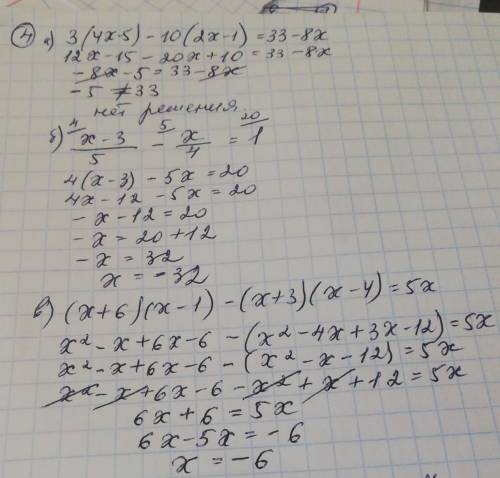 ④ а) 3(4x-5) - 10(2x-1) = 33-8x
12x-15 - 20x+10 = 33-8x
-8x-5 = 33-8x
-5 ≠ 33
нет решения
б) ⁴/ (x-3)/5 - ⁵/ x/4 = ²⁰/ 1
4(x-3) - 5x = 20
4x-12 - 5x = 20
-x-12 = 20
-x = 20+12
-x = 32
x = -32
в) (x+6)(x-1) - (x+3)(x-4) = 5x
x² - x + 6x - 6 - (x² - 4x + 3x - 12) = 5x
x² - x + 6x - 6 - (x² - x - 12) = 5x
x² - x + 6x - 6 - x² + x + 12 = 5x
6x + 6 = 5x
6x - 5x = -6
x = -6